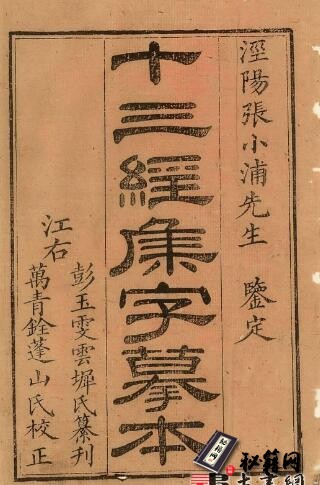 涇陽張小浦先生 鑒定
十三經集字摹本
江右
彭玉雯雲墀氏纂刊
萬青銓蓬山氏校正
秘籍网